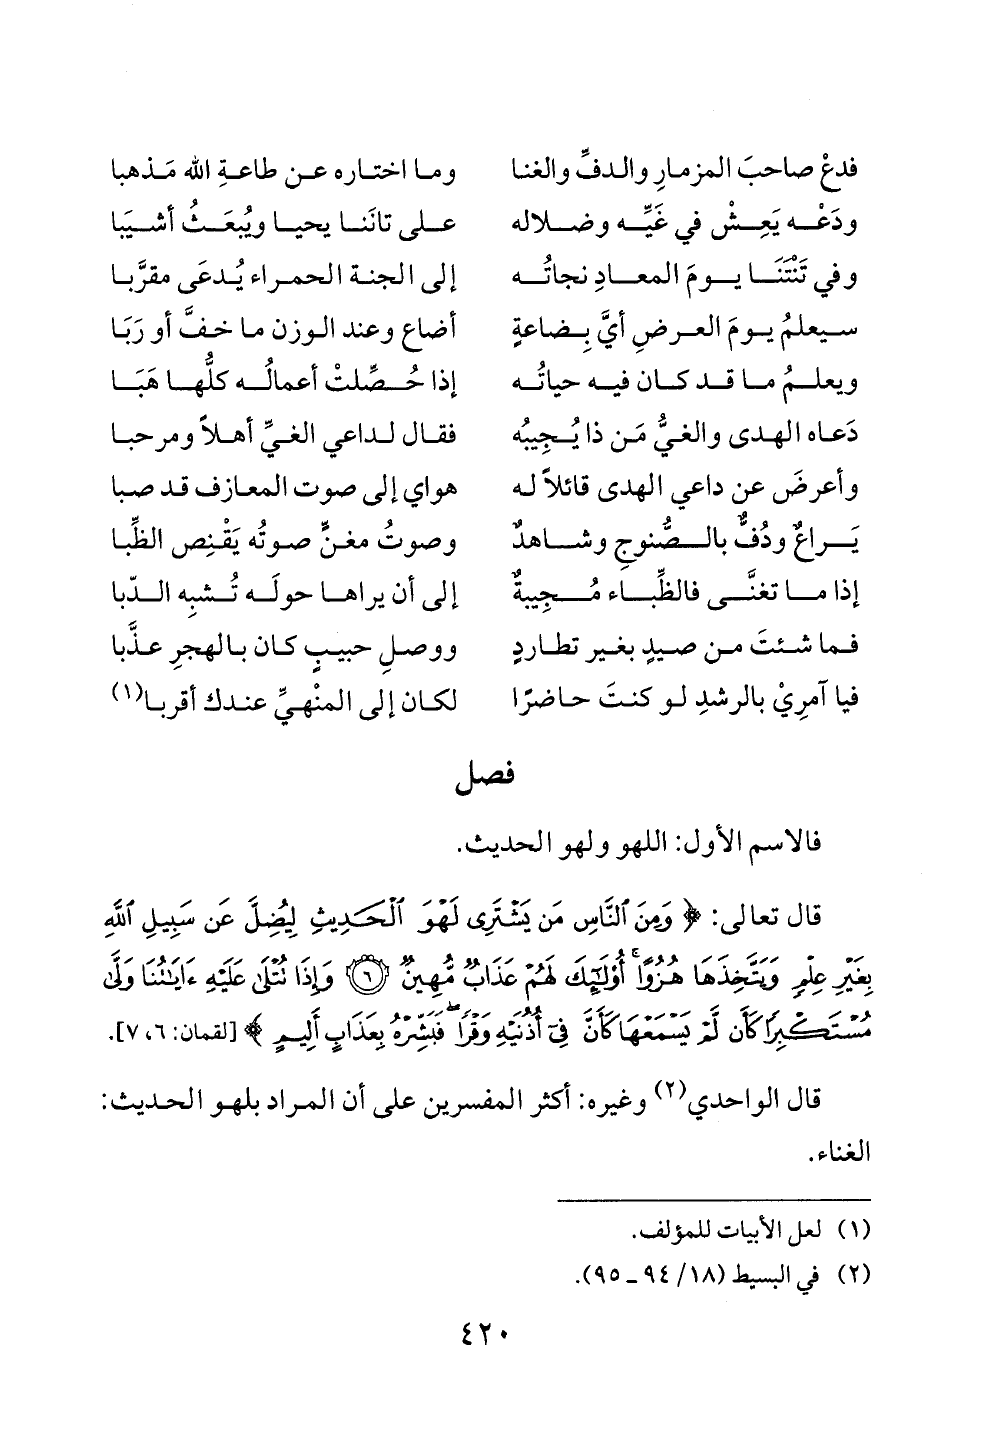 فدعْ صاحبَ المزمارِ والدفِّ والغنا وما اختاره عن طاعةِ الله مَذهبا
ودَعْه يَعِشْ في غَيِّه وضلاله على تاتَنا يحيا ويُبعَثُ أشيَبَا
وفي تَنْتَنَا يومَ المعادِ نجاتُه إلى الجنة الحمراء يُدعَى مقرَّبا
سيعلمُ يومَ العرضِ أيَّ بِضاعةٍ أضاع وعند الوزن ما خفَّ أو رَبَا
ويعلمُ ما قد كان فيه حياتُه إذا حُصِّلتْ أعمالُه كلُّها هَبَا
دَعاه الهدى والغيُّ مَن ذا يُجيبُه فقال لداعي الغيِّ أهلاً ومرحبا
وأعرضَ عن داعي الهدى قائلاً له هواي إلى صوت المعازف قد صبا
يَراعٌ ودُفٌّ بالصُّنوجِ وشاهدٌ وصوتُ مغنٍّ صوتُه يَقْنِص الظِّبا
إذا ما تغنَّى فالظِّباء مُجيبةٌ إلى أن يراها حولَه تُشبِه الدّبا
فما شئتَ من صيدٍ بغير تطاردٍ ووصلِ حبيبٍ كان بالهجرِ عذَّبا
فيا آمرِيْ بالرشدِ لو كنتَ حاضرًا لكان إلى المنْهيِّ عندك أقربا(١)
فصل
فالاسم الأول: اللهو ولهو الحديث.
قال تعالى: ﴿ وَمِنَ ٱلنَّاسِ مَن يَشْتَرِى لَهْوَ ٱلْحَدِيثِ لِيُضِلَّ عَن سَبِيلِ ٱللَّهِ
بِغَيْرِ عِلْمٍ وَيَتَّخِذَهَا هُزُوًا ۚ أُوْلَٰٓئِكَ لَهُمْ عَذَابٌ مُّهِينٌ ۝٦ وَإِذَا تُتْلَىٰ عَلَيْهِ ءَايَٰتُنَا وَلَّىٰ
مُسْتَكْبِرًا كَأَن لَّمْ يَسْمَعْهَا كَأَنَّ فِىٓ أُذُنَيْهِ وَقْرًا ۖ فَبَشِّرْهُ بِعَذَابٍ أَلِيمٍ ﴾ [لقمان: ٦، ٧].
قال الواحدي(٢) وغيره: أكثر المفسرين على أن المراد بلهو الحديث:
الغناء.
(١) لعل الأبيات للمؤلف.
(٢) في البسيط (١٨/ ٩٤ ـ ٩٥).
٤٢٠